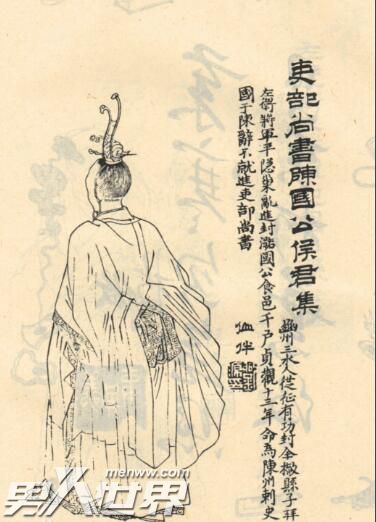 吏部尚書陳國公侯君集
豳州三水人從征有功封全椒縣子拜
左衛將軍平隱巢亂進封潞國公食邑千戶貞觀十三年命為陳州刺史
國于陳辭不就進吏部尚書
menww.com
男人世界